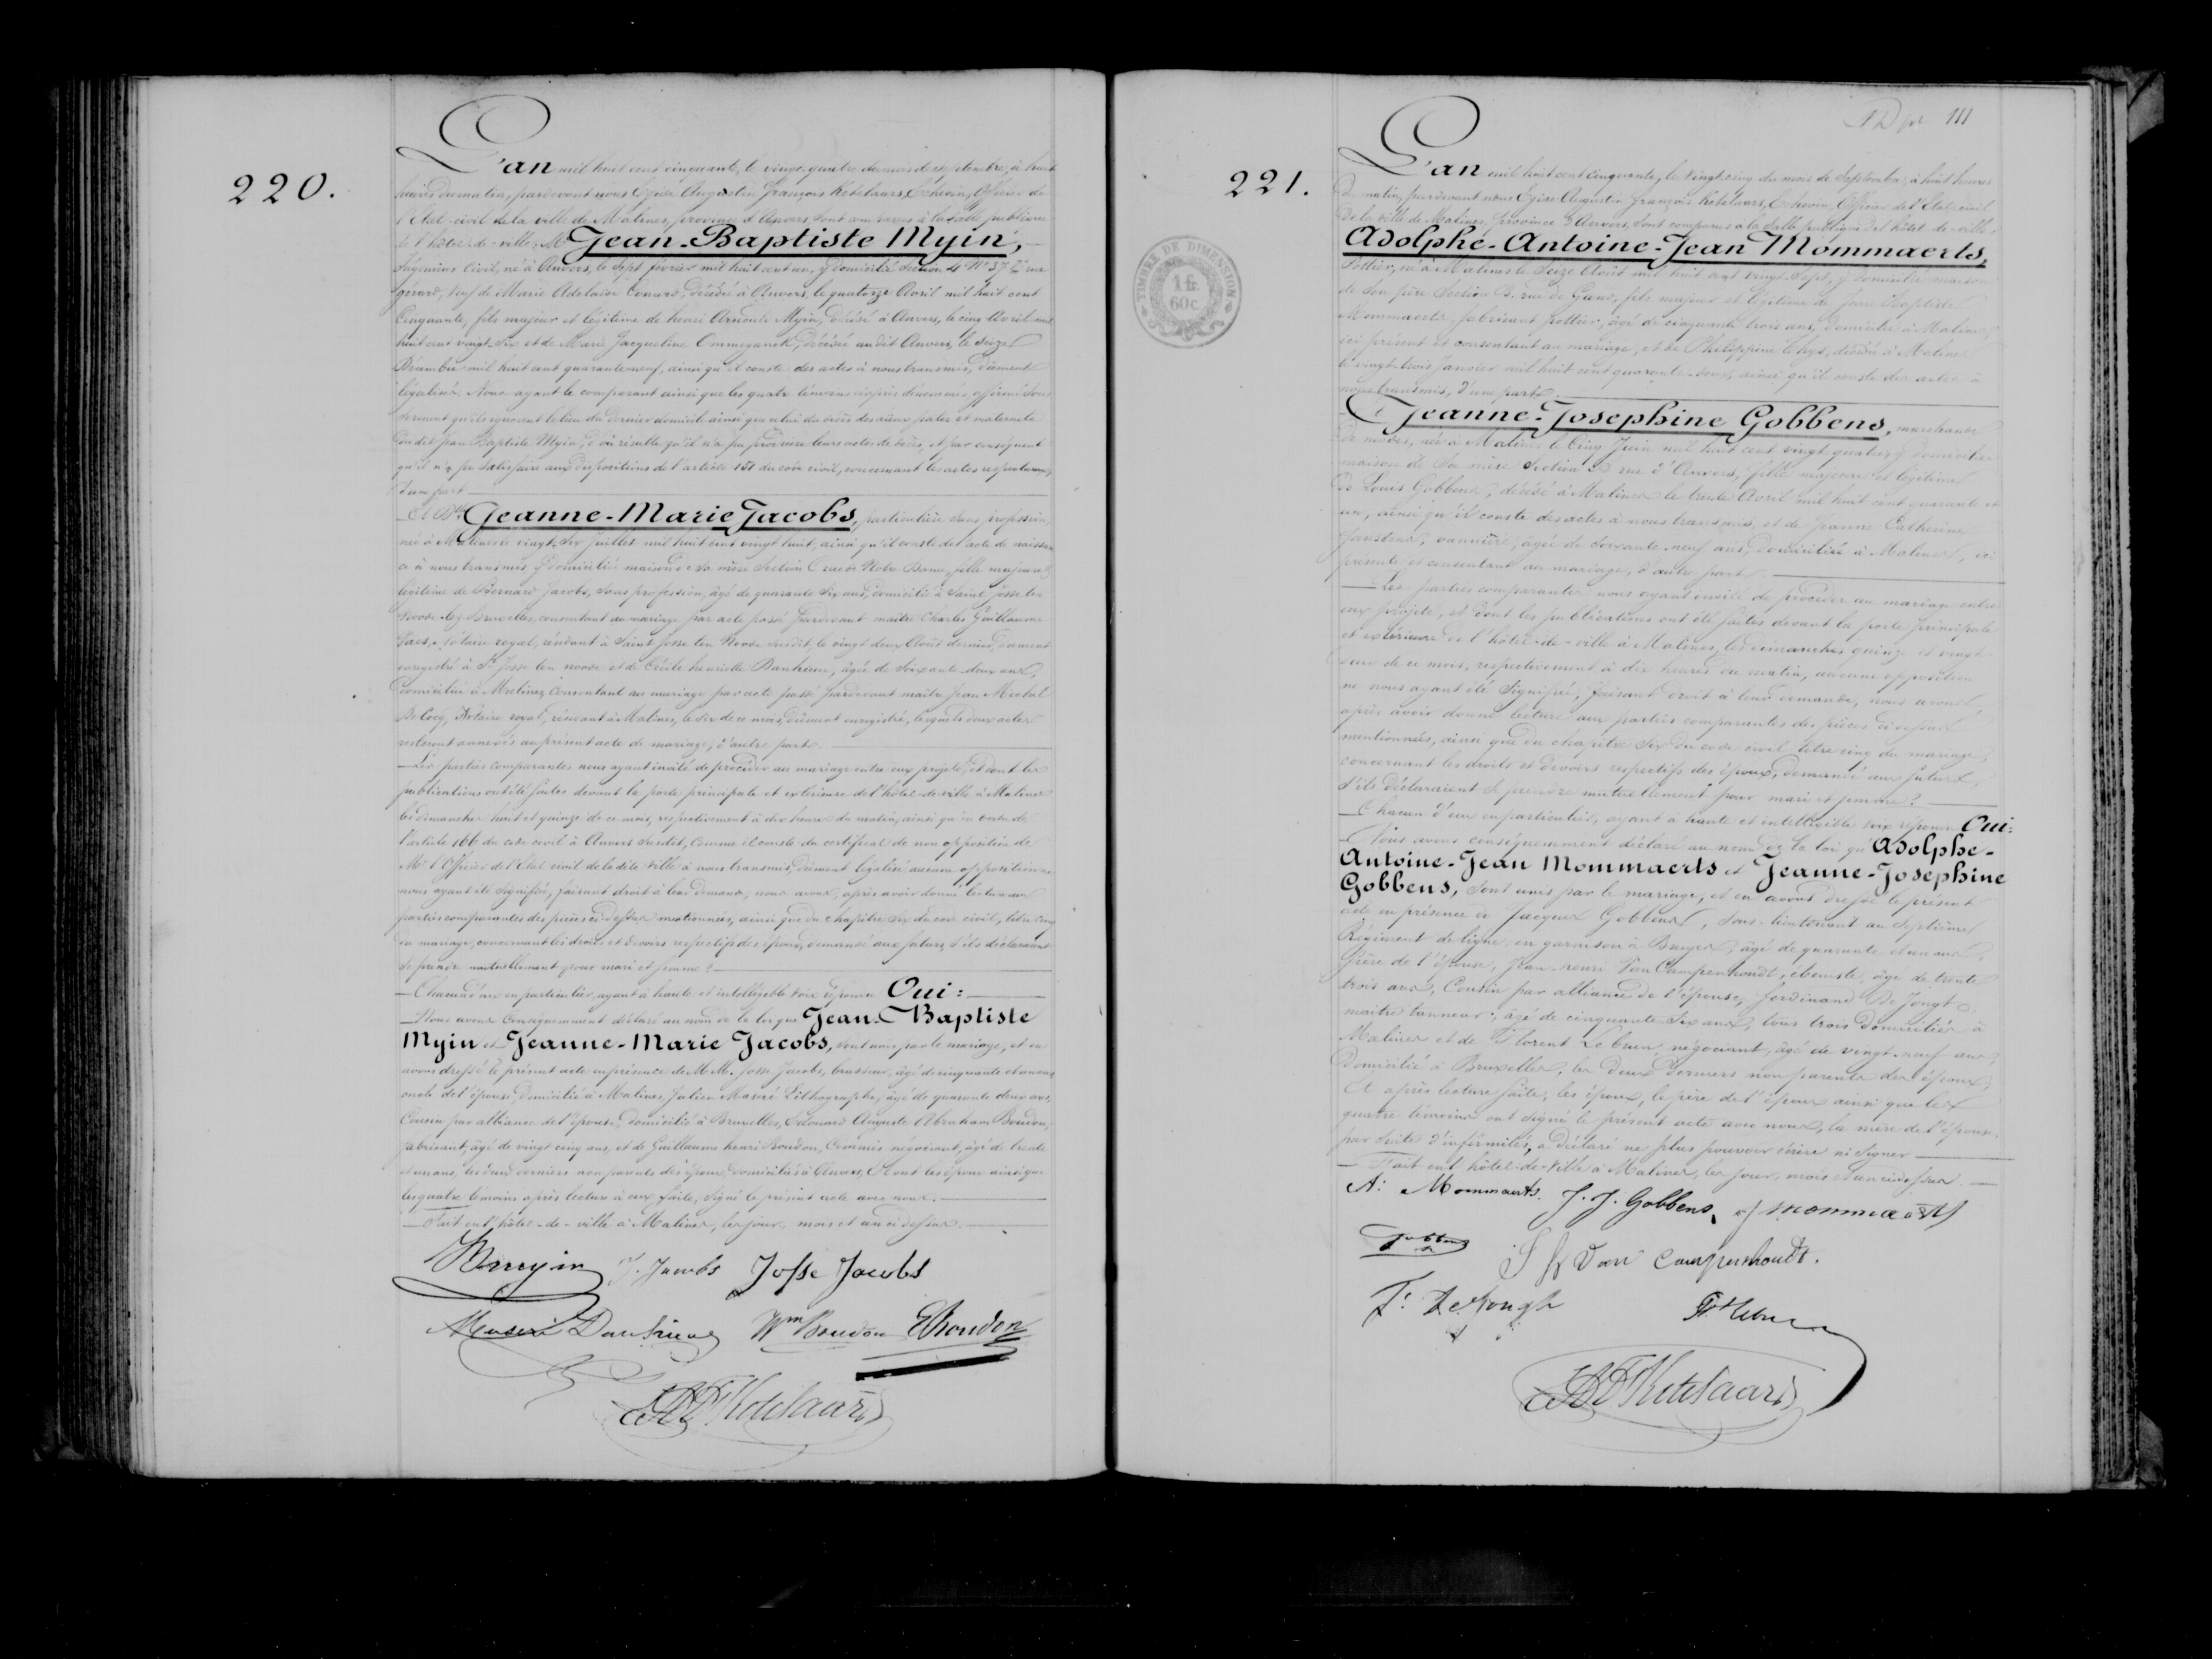 220.
L'an mil huit cent cinquante, le vingt quatre du mois de septembre, à huit
heures du matin, pardevant nous Egide Augustin François Ketelaars, Echevin, Officier de
l'Etat-civil de la ville de Malines, province d'Anvers, sont comparus à la salle publique
de l'hôtel-de-ville; Mr Jean-Baptiste Myin,
Ingénieur Civil, né à Anvers, le sept février mil huit cent un, y domicilié Section 4 No 37 rue
gérard, veuf de Marie Adelaïde décédée à Anvers, le quatorze Avril mil huit cent
Cinquante, fils majeur et légitime de henri Arnould Myin, décédé à Anvers, le cinq Avril mil
huit cent vingt six et de Marie Jacqueline Ommeganck, décédée au dit Anvers, le seize
Décembre mil huit cent quarante neuf, ainsi qu'il conste des actes à nous transmis, dûment
légalisés. Nous ayant le comparant ainsi que les quatre témoins ciaprès dénommés, affirmé sous
serment qu'ils ignorent le lieu du dernier domicile ainsi que celui du décès des aïeux pater et maternels
du dit Jean Baptiste Myin, d'où résulte qu'il n'a pu produire leurs actes de décès, et par conséquent
qu'il n'a pu satisfaire aux dispositions de l'article 151 du code civil, concernant les actes respectueux,
d'une part
Et Dlle Jeanne-Marie Jacobs, particulière sans profession,
née à Malines le vingt-six Juillet mil huit cent vingt huit, ainsi qu'il conste de l'acte de naissan
ce à nous transmis, y domiciliée maison de sa mère Section C rue de Notre Dame, fille majeure &
légitime de Bernard Jacobs, sans profession, âgé de quarante six ans, domicilié à Saint Josse ten
Noode-lez-Bruxelles, consentant au mariage par acte passé pardevant maître Charles Guillaume
notaire royal, résidant à Saint Josse ten Noode susdit, le vingt deux Août dernier, dument
enregistré à St Josse ten noode et de Cécile henriette âgée de soixante deux ans,
domiciliée à Malines Consentant au mariage par acte passé pardevant maître Jean Michel
De Cocq, Notaire royal, résidant à Malines, le six de ce mois, dûment enregistré, lesquels deux actes
resteront annexés au présent acte de mariage, d'autre part.
Les parties comparantes nous ayant invité de procéder au mariage entre eux projeté, et dont les
publications ont été faites devant la porte principale et extérieure de l'hôtel-de-ville à Malines
les dimanches huit et quinze de ce mois, respectivement à dix heures du matin, ainsi qu'en vertu de
l'article 166 du code civil à Anvers susdit, comme il conste du certificat de non opposition de
Mr l'Officier de l'Etat civil de la dite ville à nous transmis, dûment légalisé, aucune opposition ne
nous ayant été signifiée, faisant droit à leur demande, nous avons, après avoir donné lecture aux
parties comparantes des pièces ci-dessus mentionnées, ainsi que du chapitre six du code civil, titre cinq
du mariage, concernant les droits et devoirs respectifs des époux, demandé aux futurs, s'ils déclaraient
se prendre mutuellement pour mari et femme?
Chacun d'eux en particulier, ayant à haute et intelligible voix répondu Oui:
Nous avons conséquemment déclaré au nom de la loi que Jean-Baptiste
Myin et Jeanne-Marie Jacobs, sont unis par le mariage, et en
avons dressé le présent acte en présence de M.M. Josse Jacobs, brasseur, âgé de cinquante et un ans
oncle de l'épouse, domicilié à Malines, Julien Maseré Lithographe, âgé de quarante deux ans,
Cousin par alliance de l'épouse, domicilié à Bruxelles, Edouard Auguste Abraham Boudon,
fabricant, âgé de vingt cinq ans, et de Guillaume henri Boudon, Commis négociant, âgé de trente
et un ans, les deux derniers non parents des époux, domiciliés à Anvers, Et ont les époux ainsi que
les quatre témoins après lecture à eux faite, signé le présent acte avec nous.
Fait en l'hôtel-de-ville à Malines, les jour, mois et an ci dessus.
J. Jacobs Josse Jacobs
Maseré Wm Boudon EBoudon
Ketelaars
111
221.
TIMBRE DE DIMENSION
1 fr.
60c
L'an mil huit cent cinquante, le vingt cinq du mois de Septembre, à huit heures
du matin, pardevant nous Egide Augustin François Ketelaars, Echevin, Officier de l'Etat-civil
de la ville de Malines, province d'Anvers, sont comparus à la salle publique de l'hôtel-de-ville
Adolphe-Antoine-Jean Mommaerts,
Pottier, né à Malines le Seize Août mil huit cent vingt sept, y domicilié maison
de son père Section B. rue de Gand, fils majeur et légitime de Jean Baptiste
Mommaerts, fabricant pottier, âgé de cinquante trois ans, domicilié à Malines
ici présent et consentant au mariage, et de Philippine décédée à Malines
le vingt trois Janvier mil huit cent quarante deux, ainsi qu'il conste des actes à
nous transmis, d'une part.
Et Jeanne-Josephine Gobbens, marchande
de modes, née à Malines le Cinq Juin mil huit cent vingt quatre, y domiciliée
maison de sa mère Section rue d'Anvers, fille majeure et légitime
de Louis Gobbens, décédé à Malines le trente Avril mil huit cent quarante et
un, ainsi qu'il conste des actes à nous transmis, et de Jeanne Catherine
Janssens, vannière, âgée de soixante neuf ans, domiciliée à Malines, ici
présente et consentant au mariage, d'autre part.
Les parties comparantes nous ayant invité de procéder au mariage entre
eux projeté, et dont les publications ont été faites devant la porte principale
et extérieure de l'hôtel-de-ville à Malines, les dimanches quinze et vingt
deux de ce mois, respectivement à dix heures du matin, aucune opposition
ne nous ayant été signifiée; faisant droit à leur demande, nous avons,
après avoir donné lecture aux parties comparantes des pièces ci-dessus
mentionnées, ainsi que du chapitre six du code civil titre cinq du mariage,
concernant les droits et devoirs respectifs des époux, demandé aux futurs,
s'ils déclaraient se prendre mutuellement pour mari et femme?
Chacun d'eux en particulier, ayant à haute et intelligible voix répondu Oui:
Nous avons conséquemment déclaré au nom de la loi que Adolphe-
Antoine-Jean Mommaerts et Jeanne-Josephine
Gobbens, sont unis par le mariage, et en avons dressé le présent
acte en présence de Jacques Gobbens, sous-lieutenant au septième
Régiment de ligne, en garnison à Bruges, âgé de quarante et un ans,
frère de l'épouse, Jean-henri Van Campenhoudt, ébeniste, âgé de trente
trois ans, Cousin par alliance de l'épouse, ferdinand De Jongh
maître tanneur, âgé de cinquante six ans, tous trois domiciliés à
Malines et de Florent Lebrun, négociant, âgé de vingt-neuf ans,
domicilié à Bruxelles, les deux derniers non parents des époux,
Et après lecture faite, les époux, le père de l'époux ainsi que les
quatre témoins ont signé le présent acte avec nous, la mère de l'épouse,
par suite d'infirmités, a déclaré ne plus pouvoir écrire ni signer
Fait en l'hôtel-de-ville à Malines, les jour, mois et an ci dessus.
A: Mommaerts. J. J. Gobbens J Mommaerts
Gobbens J H Van Campenhoudt.
F: De Jongh
Ketelaars